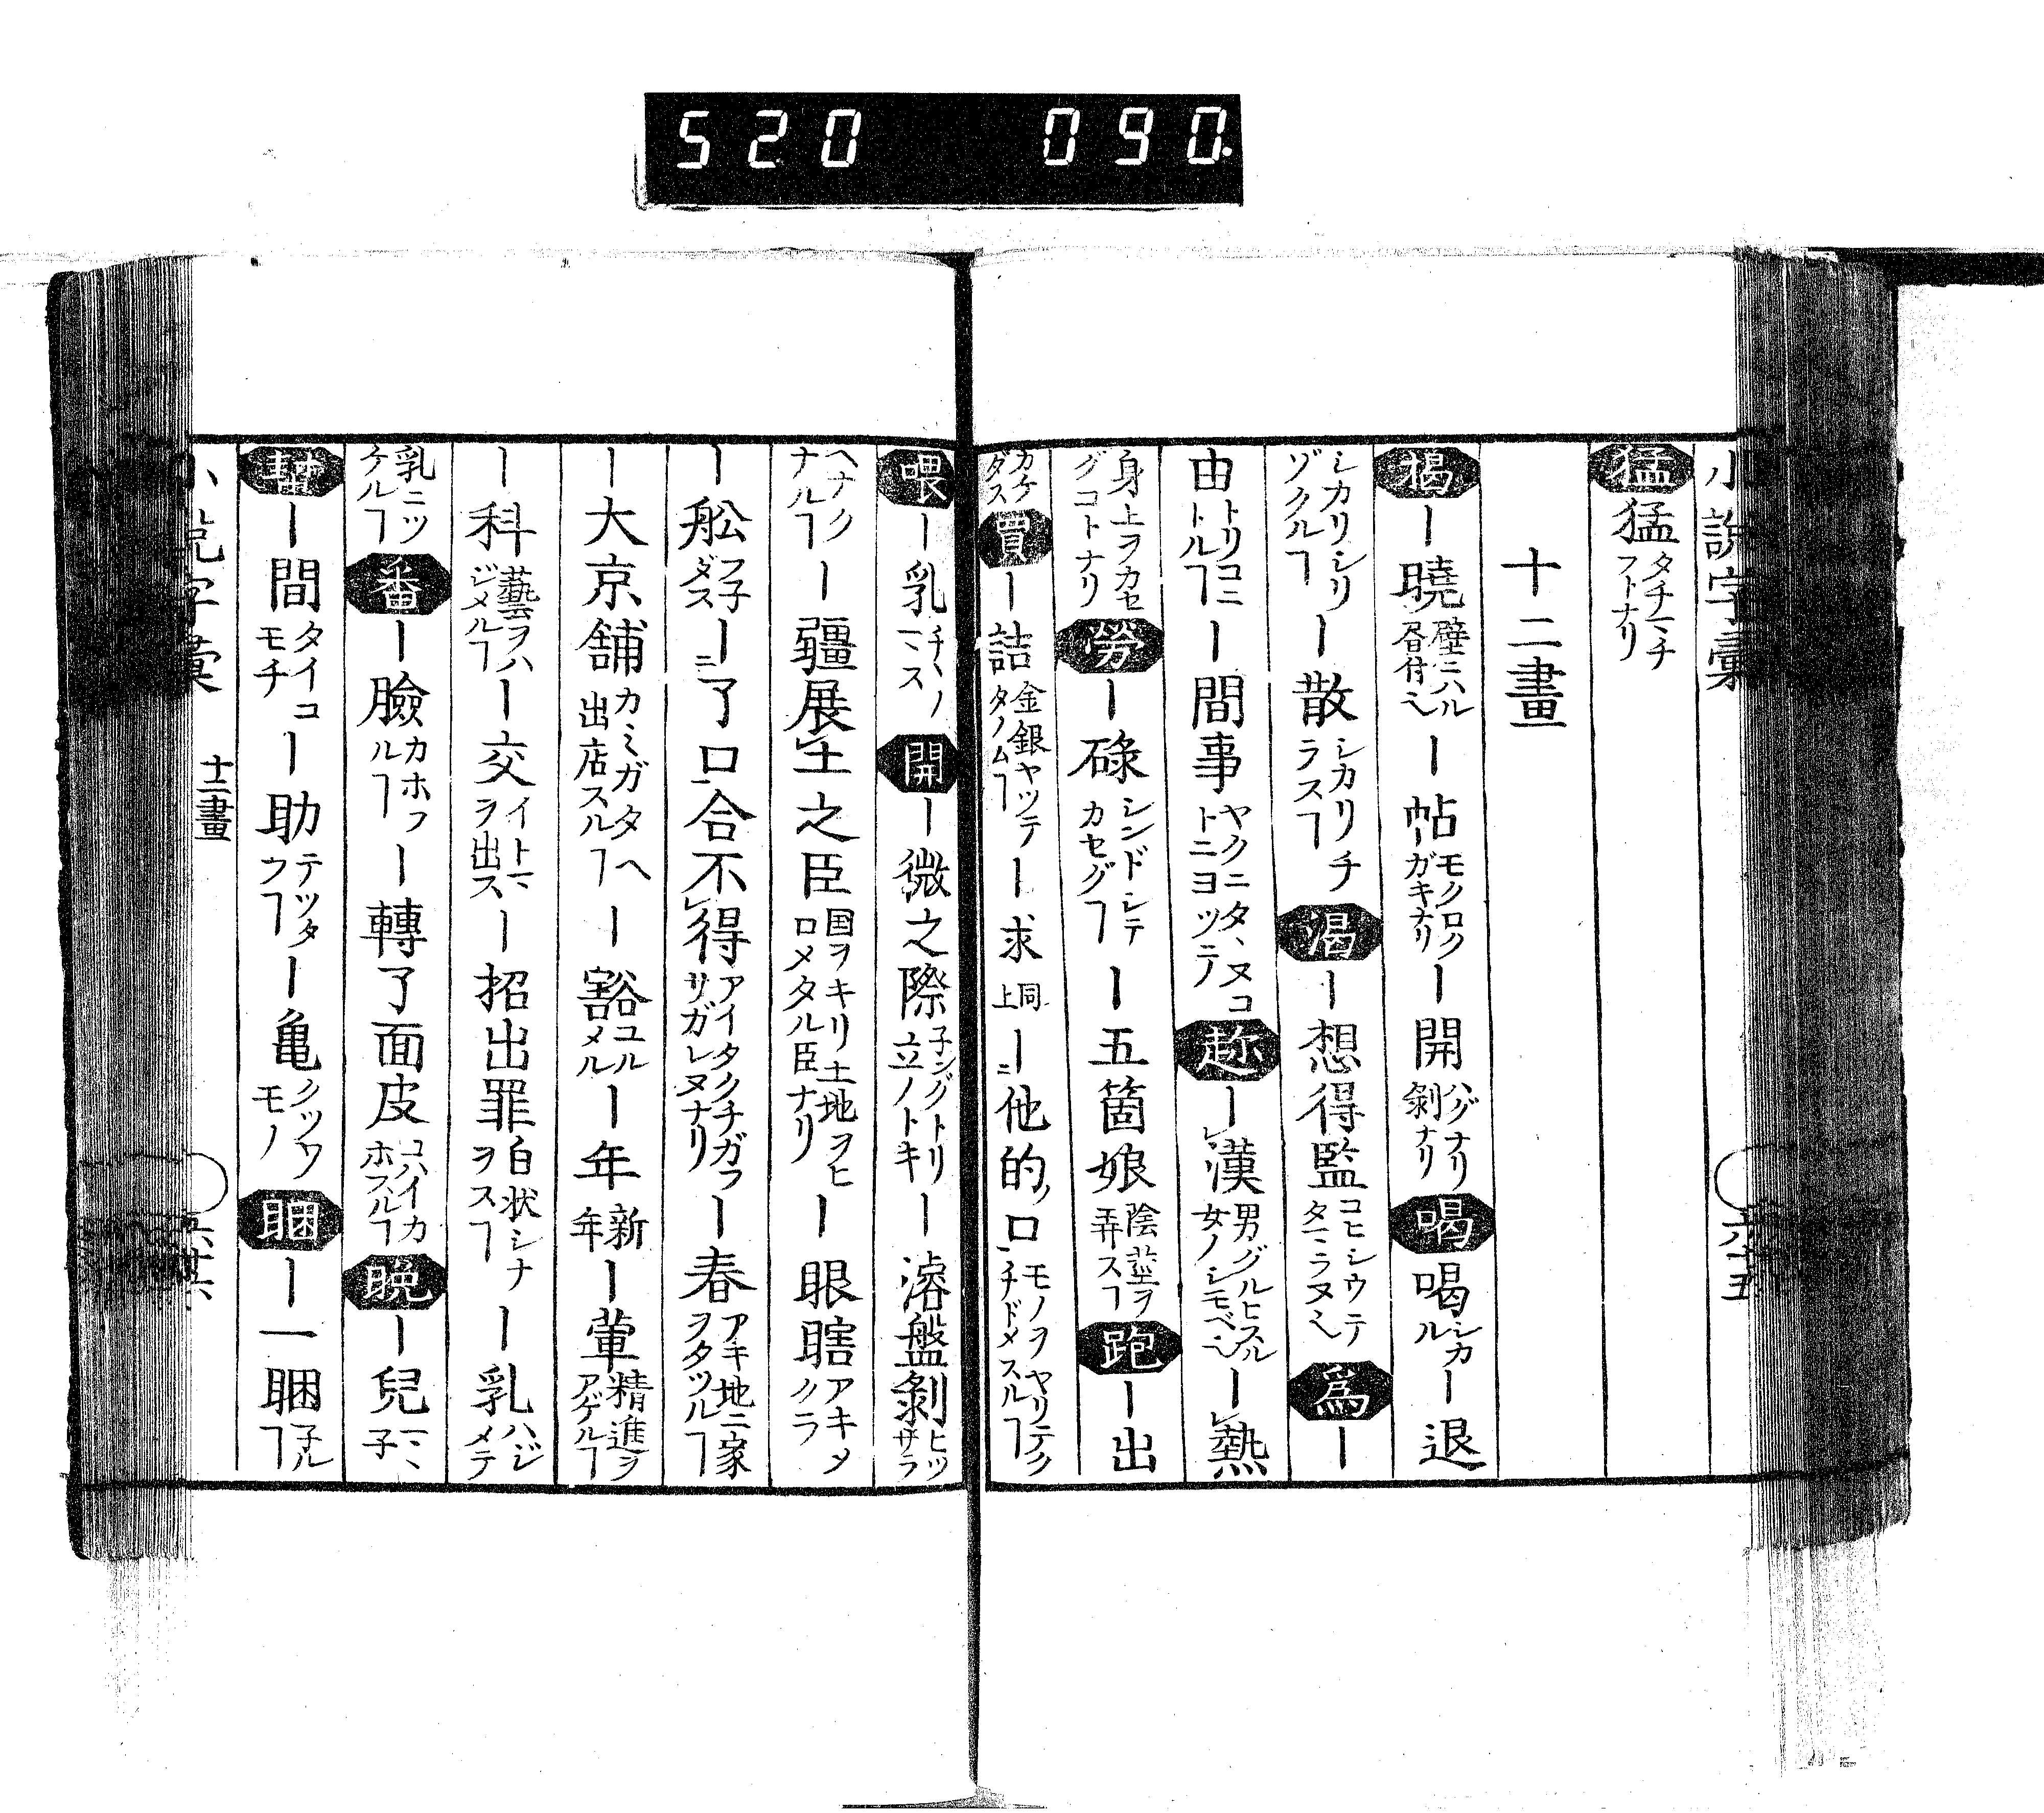 520 090.
小説字彙
猛 猛タチマチフトナリ
十二畫
揭 ー曉壁ニハル昼付ヘ ー帖モクロクガキナリ ー開ハグナリ剝ナリ 喝 喝シカル ー退
シカリシリゾクルヿ ー散シカリチラスヿ 渴 ー想得監コヒシウテタマラヌヘ 爲 ー
由トリコニトルヿ ー間事ヤクニタヽヌコトニヨツテ ーレ漢男グルヒスル女ノシモベヘ ーレ熱
身上ヲカセグコトナリ 勞 ー碌シンドシテカセグヿ ー五箇娘陰莖ヲ弄スヿ 跑 ー出
カケダス 買 ー詰金銀ヤツテタノムヿ ー求同上 ーニ他的ノ口一モノヲヤリテクチドメスルヿ
喂 ー乳チヽノマス 開 ー微之際子ングトリ立ノトキ ー濬盤剝ヒツサラ
ヘナクナルヿ ー疆展土之臣国ヲキリ土地ヲヒロメタル臣ナリ ー眼瞎アキメクラ
ー舩フ子ダス ーニ了口一合不レ得アイタクチガフサガレヌナリ ー春アキ地ニ家ヲタツルヿ
ー大京舗カミガタヘ出店スルヿ ー豁ユルメル ー年新年 ー葷精進ヲアゲルヿ
ー科藝ヲハジメルヿ ー交イトマヲ出ス ー招出罪白状シナヲスヿ ー乳ハジメテ
乳ニツケルヿ 番 ー臉カホフルヿ ー轉了面皮コハイカホフルヿ 晩 ー兒マヽ子
ー間タイコモチ ー助テツタフヿ ー亀クツワモノ 睏 ー一睏子ルヿ
小説字彙 十二畫